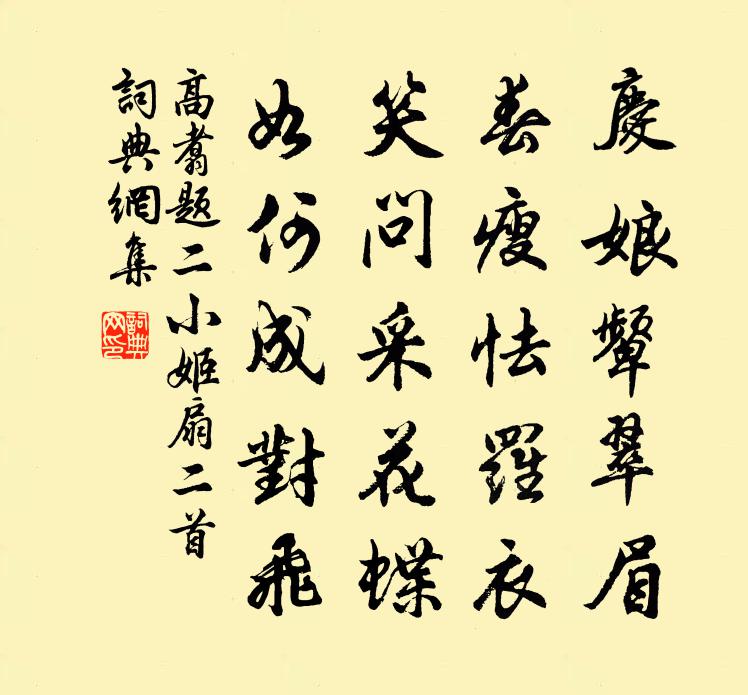 慶娘顰翠眉
春瘦怯羅衣
笑問采花蝶
如何成對飛
高翥題二小姬扇二首
詞典網集
詞典網印